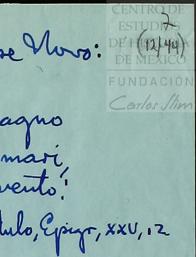 7
(12/44)
CENTRO DE
ESTUDIOS
DE HISTORIA
DE MÉXICO
FUNDACIÓN
Carlos Slim
se Novo:
agno
mari,
vento!
tulo, Epigr, XXV, 12